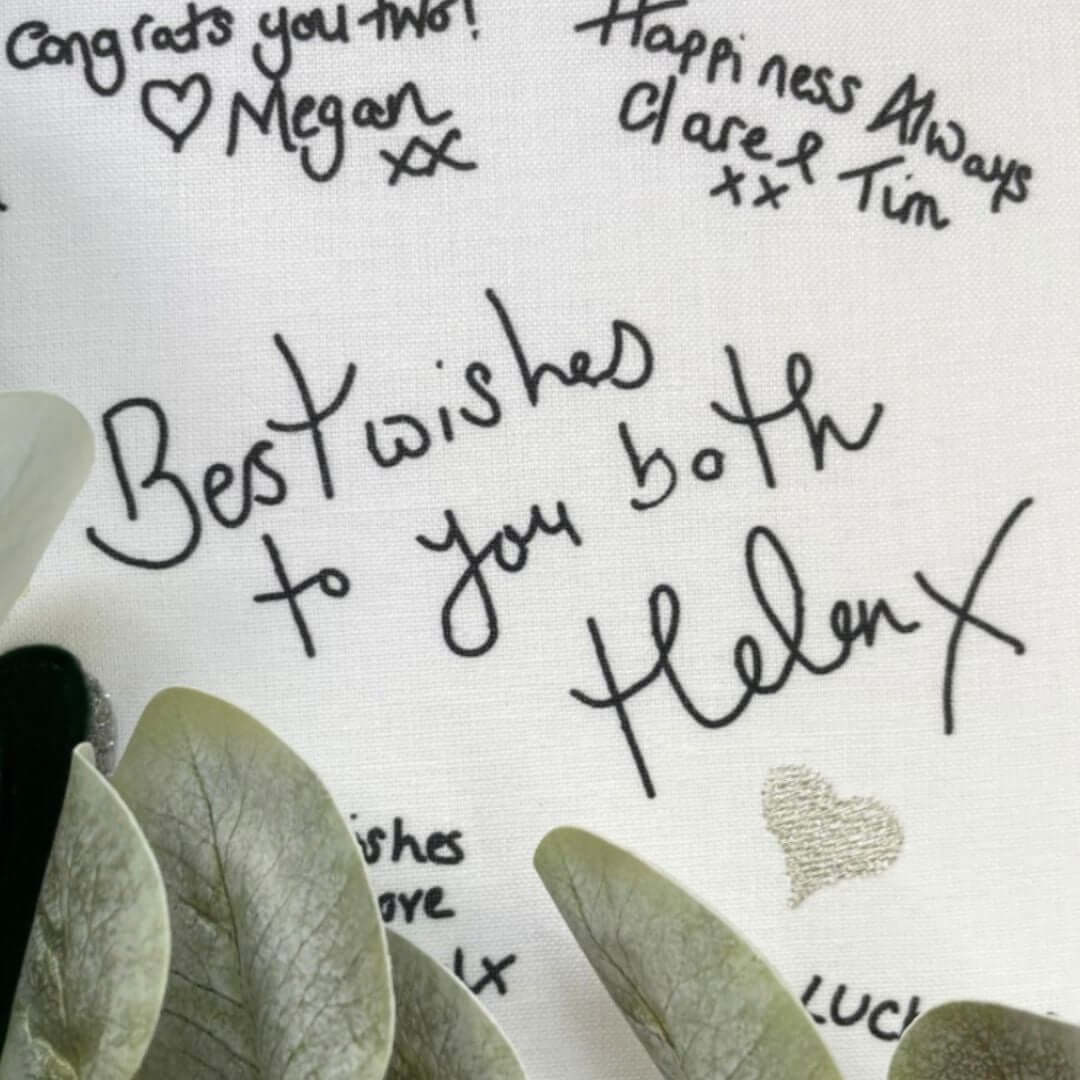 Congrats you two!
♡ Megan
xx
Happiness Always
Clare & Tim
xx
Best wishes
to you both
Helen X